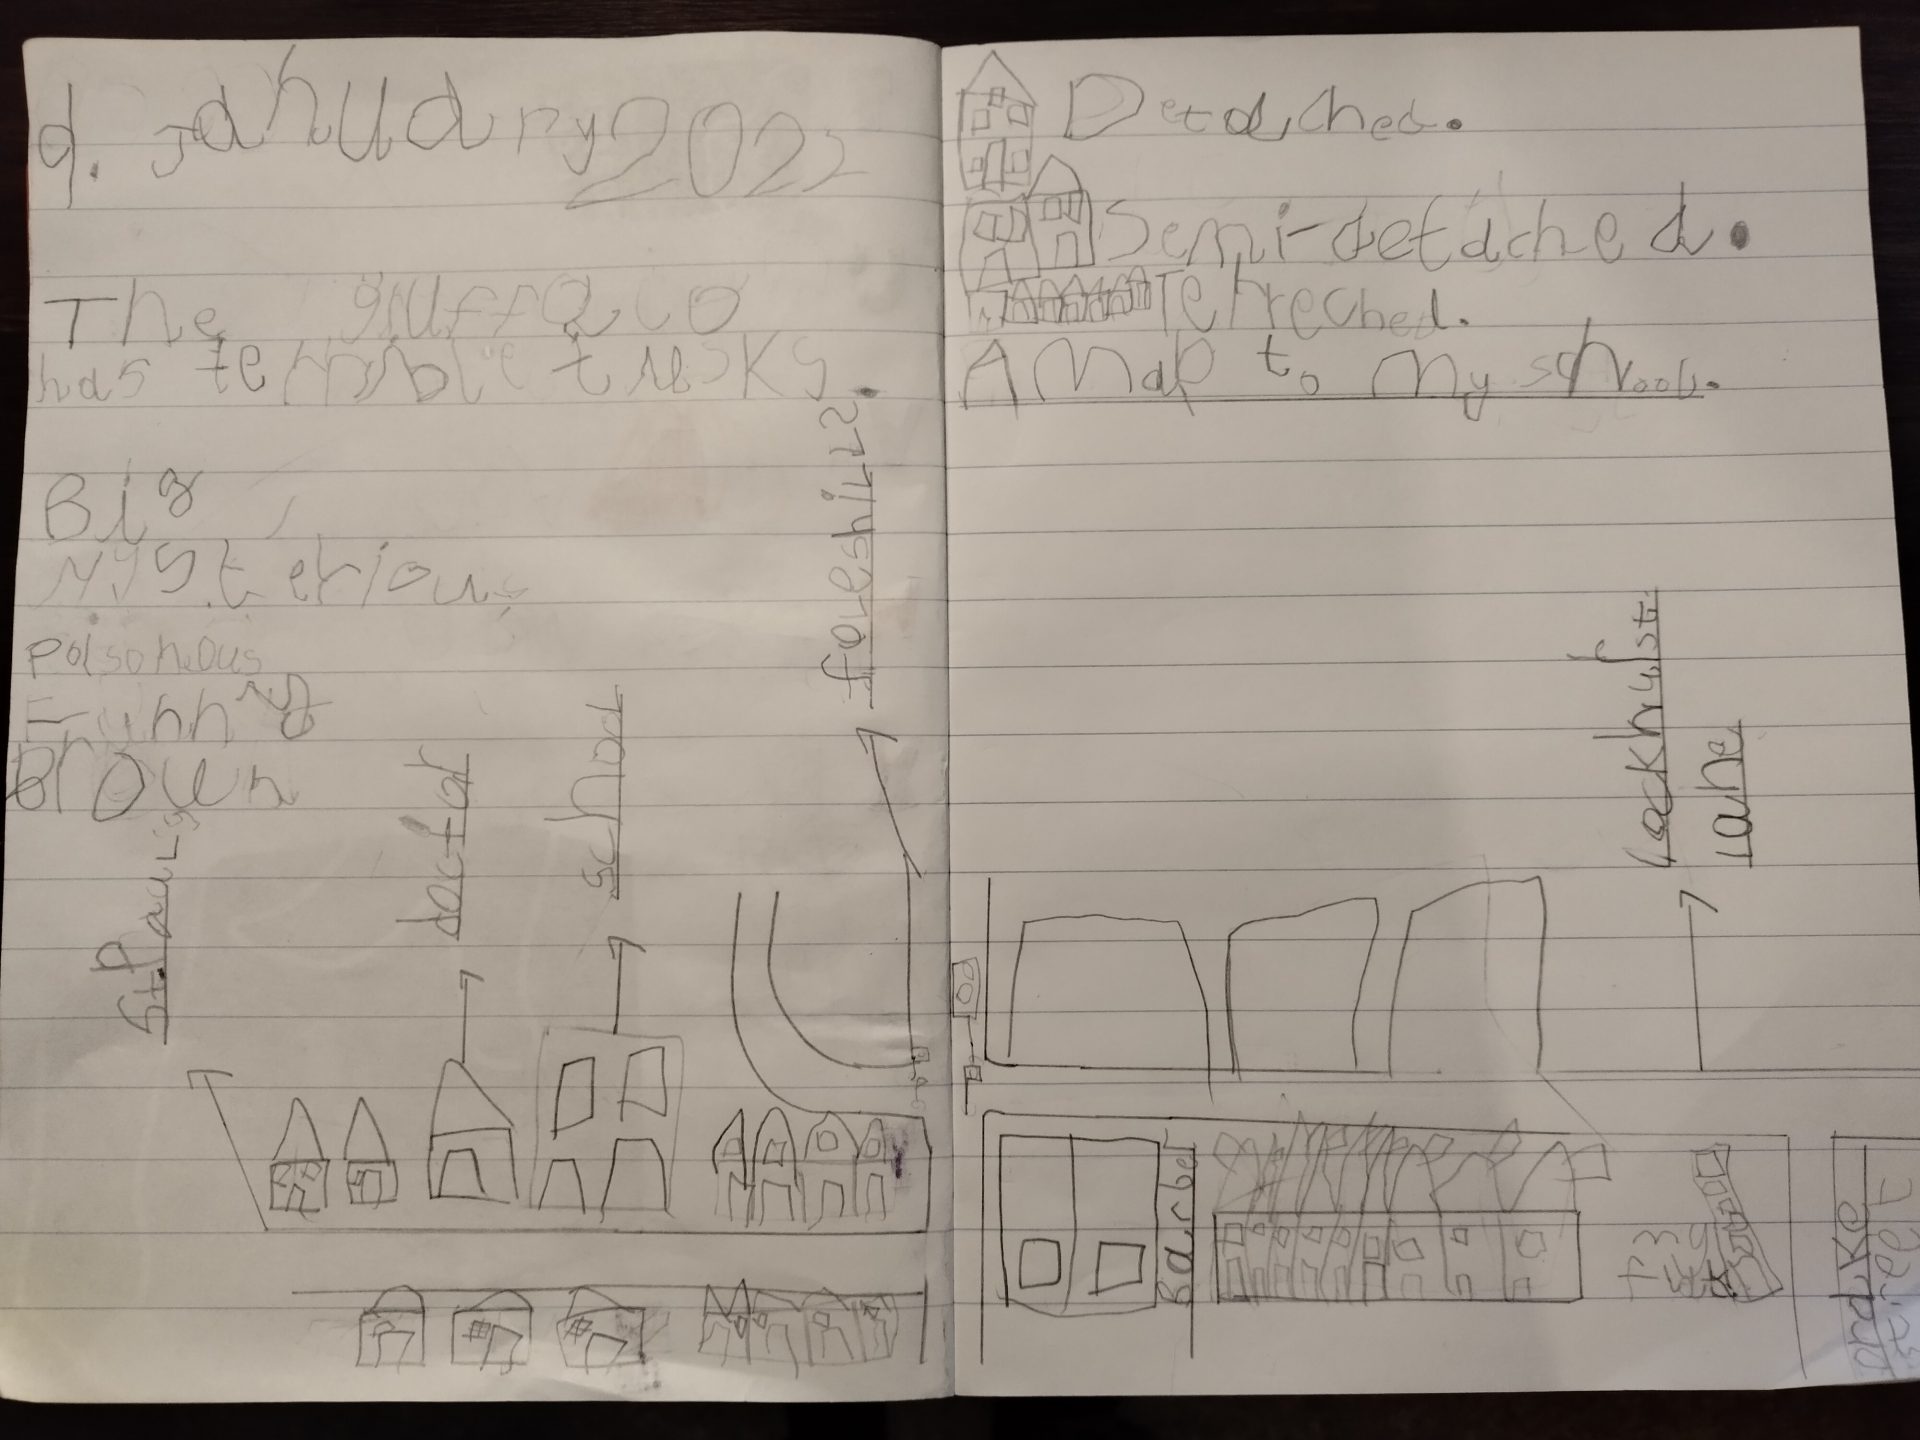 9. January 2022
The gruffalo
has terrible tusks.
Big
Mysterious
Poisoneous
Brown
St. Paul's
doctor
school
foleshill
Detached.
Semi-detached.
Terreched.
A Map to My school.
Lockhurst
Lane
Barber
Drake
street